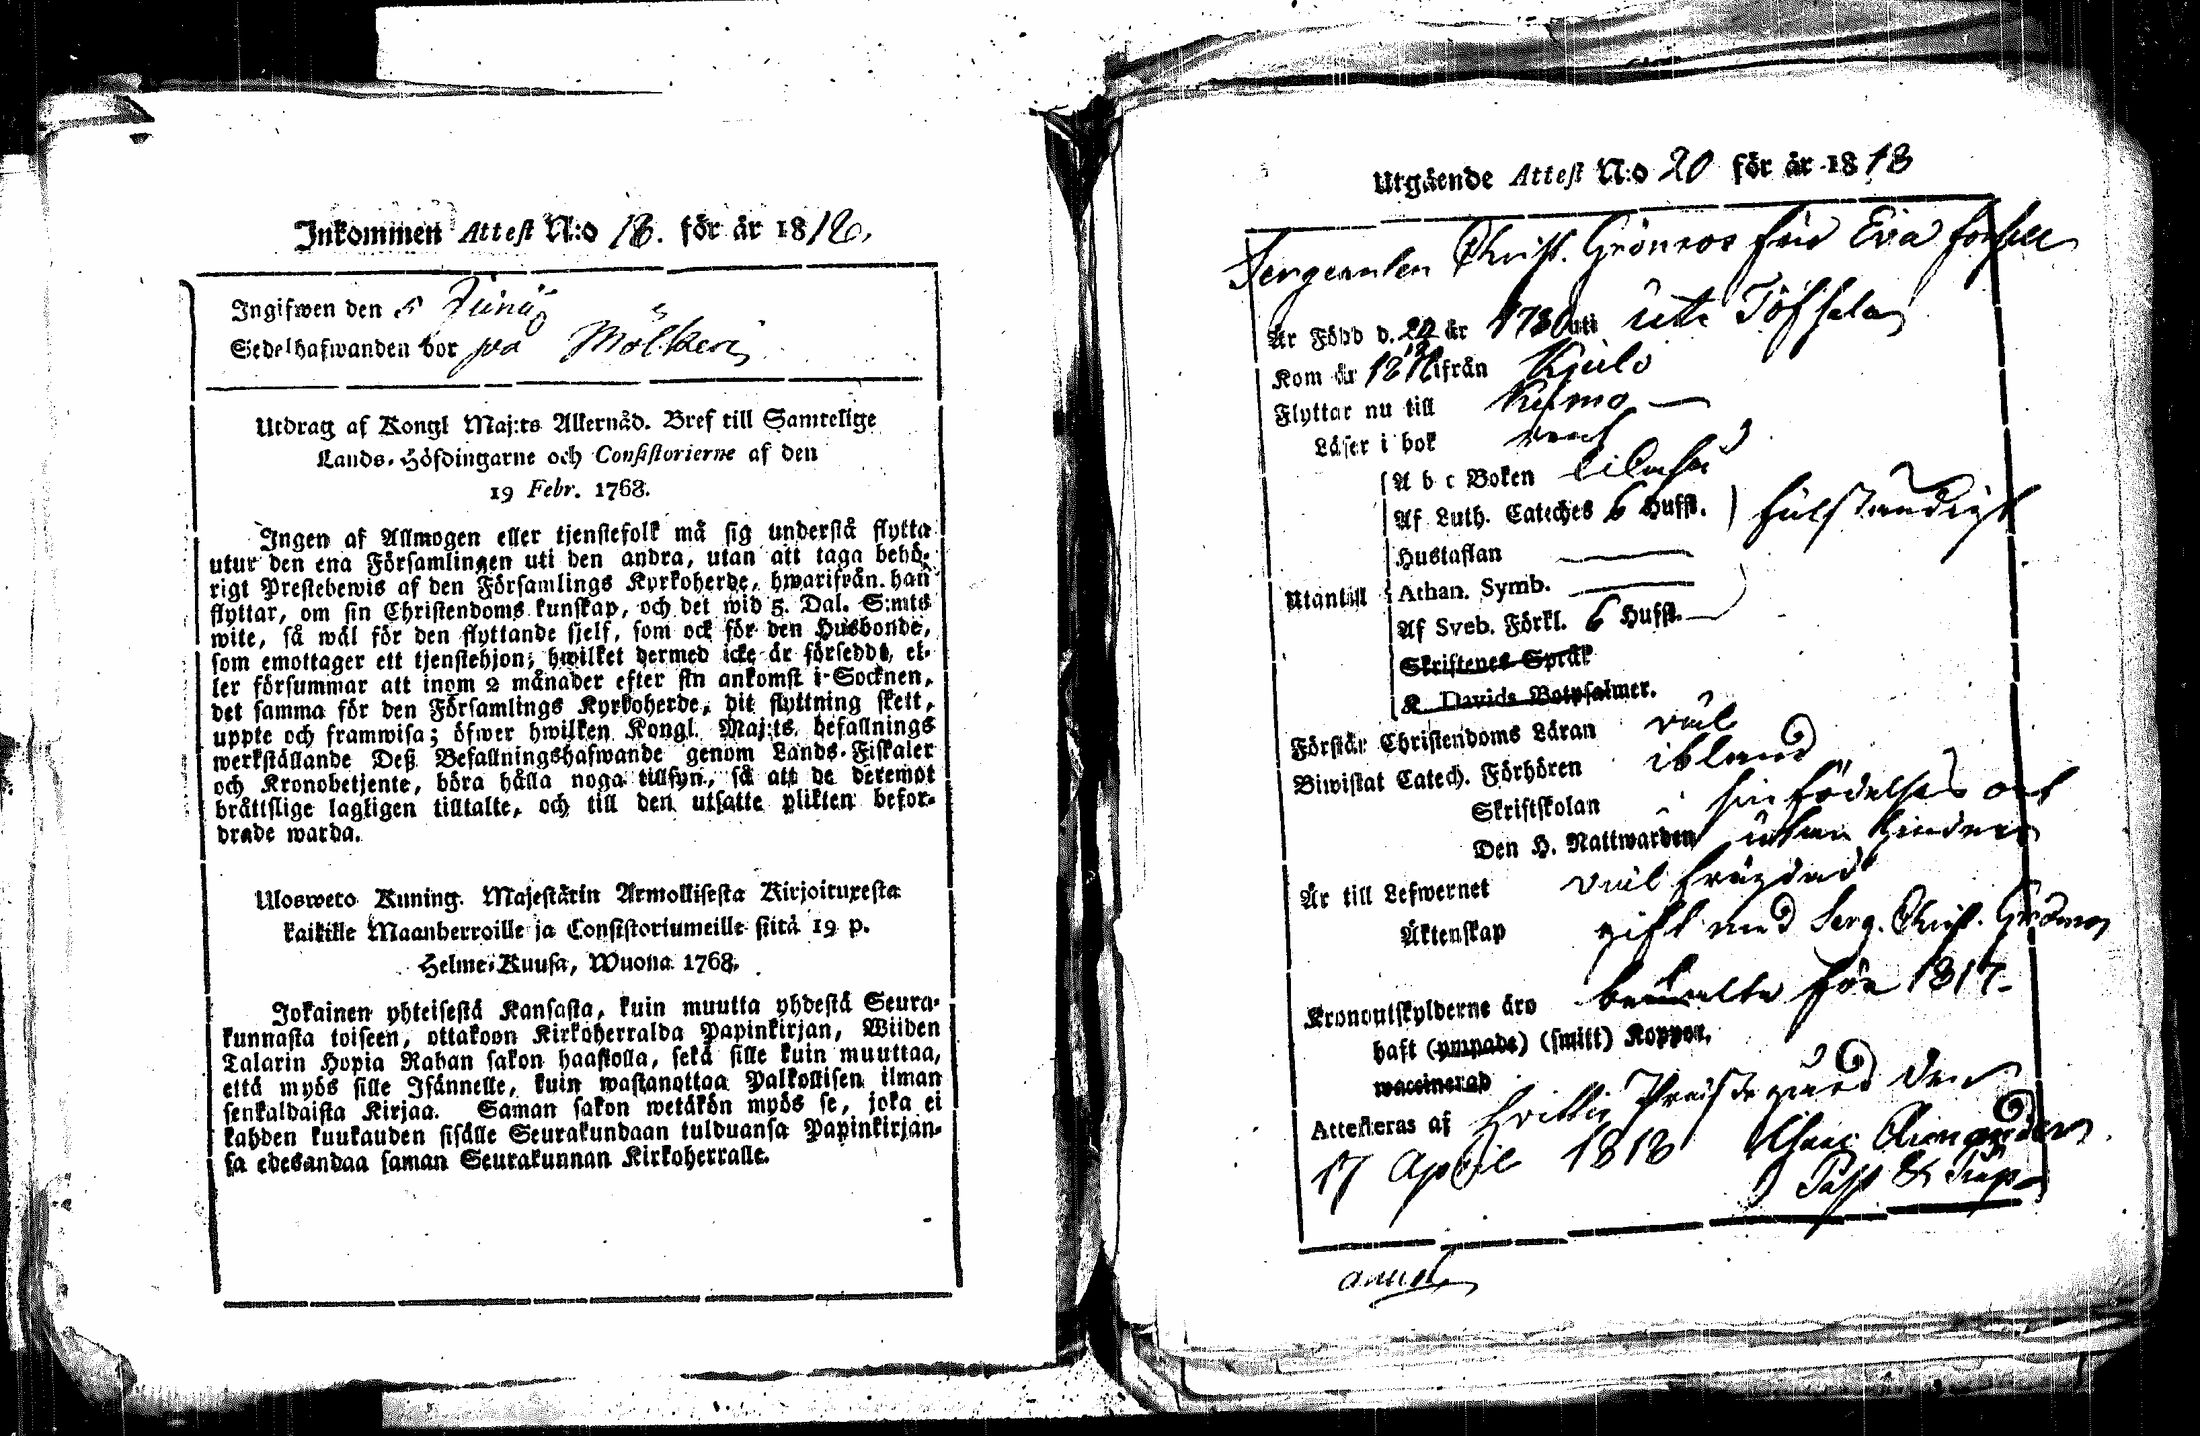 Inkommen Attest N:o 18. för år 1818.
Ingifwen den 5 Junij
Sedelhafwanden bor på Mölkeri
Utdrag af Kongl Maj:ts Allernåd. Bref till Samtelige
Lands-Höfdingarne och Consistorierne af den
19 Febr. 1768.
Ingen af Allmogen eller tjenstefolk må sig understå flytta
utur den ena Församlingen uti den andra, utan att taga behö-
rigt Prestebewis af den Församlings Kyrkoherde, hwarifrån han
flyttar, om sin Christendoms kunskap, och det wid 5. Dal. S:mts
wite, så wäl för den flyttande sjelf, som ock för den Husbonde,
som emottager ett tjenstehjon; hwilket dermed icke är försedd, el-
ler försummar att inom 2 månader efter sin ankomst i Socknen,
det samma för den Församlings Kyrkoherde, dit flyttning skett,
uppte och framwisa; öfwer hwilken Kongl. Maj:ts befallnings
werkställande Deß Befallningshafwande genom Lands-Fiskaler
och Kronobetjente, böra hålla noga tillsyn, så att de deremot
bråttslige lagligen tilltalte, och till den utsatte plikten befor-
drade warda.
Ulosweto Kuning. Majestätin Armollisesta Kirjoituxesta
kaikille Maanherroille ja Consistoriumeille siitä 19 p.
Helme-Kuusa, Wuona 1768.
Jokainen yhteisestä Kansasta, kuin muutta yhdestä Seura-
kunnasta toiseen, ottakoon Kirkoherralda Papinkirjan, Wiiden
Talarin Hopia Rahan sakon haastolla, sekä sille kuin muuttaa,
että myös sille Isännelle, kuin wastanottaa Palkollisen ilman
senkaldaista Kirjaa. Saman sakon wetäkön myös se, joka ei
kahden kuukauden sisälle Seurakundaan tulduansa Papinkirjan-
sa edesandaa saman Seurakunnan Kirkoherralle.
Utgående Attest N:o 20 för år 1818
Sergeanten Christ. Grönros fru Eva
Är Född d. 22 år 1780 uti
Kom år 18 ifrån Kjulo
Flyttar nu till Kumo
Läser i bok rent
A b c Boken
Af Luth. Cateches 6 Hufst. fulständigt
Hustaflan
Athan. Symb.
Utantill
Af Sveb. Förkl. 6 Hufst.
Skriftenes Språk
K. Davids Botpsalmer.
Förstår Christendoms Läran väl
Biwistat Catech. Förhören ibland
Skriftskolan i sin födelses ort
Den H. Nattwarden utan hinder
Är till Lefwernet väl frägdad
Äktenskap gift med Serg. Christ. Grönros
Kronoutskylderne äro betalte för 1817.
haft (ympade) (smitt) Koppor.
waccinerad
Attesteras af Hvittis Prästegård den
17 April 1818
Past &